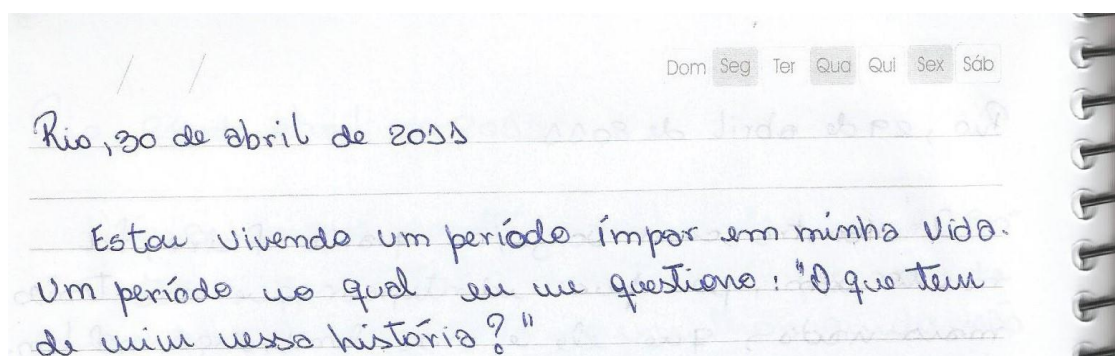 / /
Dom Seg Ter Qua Qui Sex Sáb
Rio, 30 de abril de 2011
Estou vivendo um período ímpar em minha vida.
Um período no qual eu me questiono: "O que tem
de mim nessa história?"